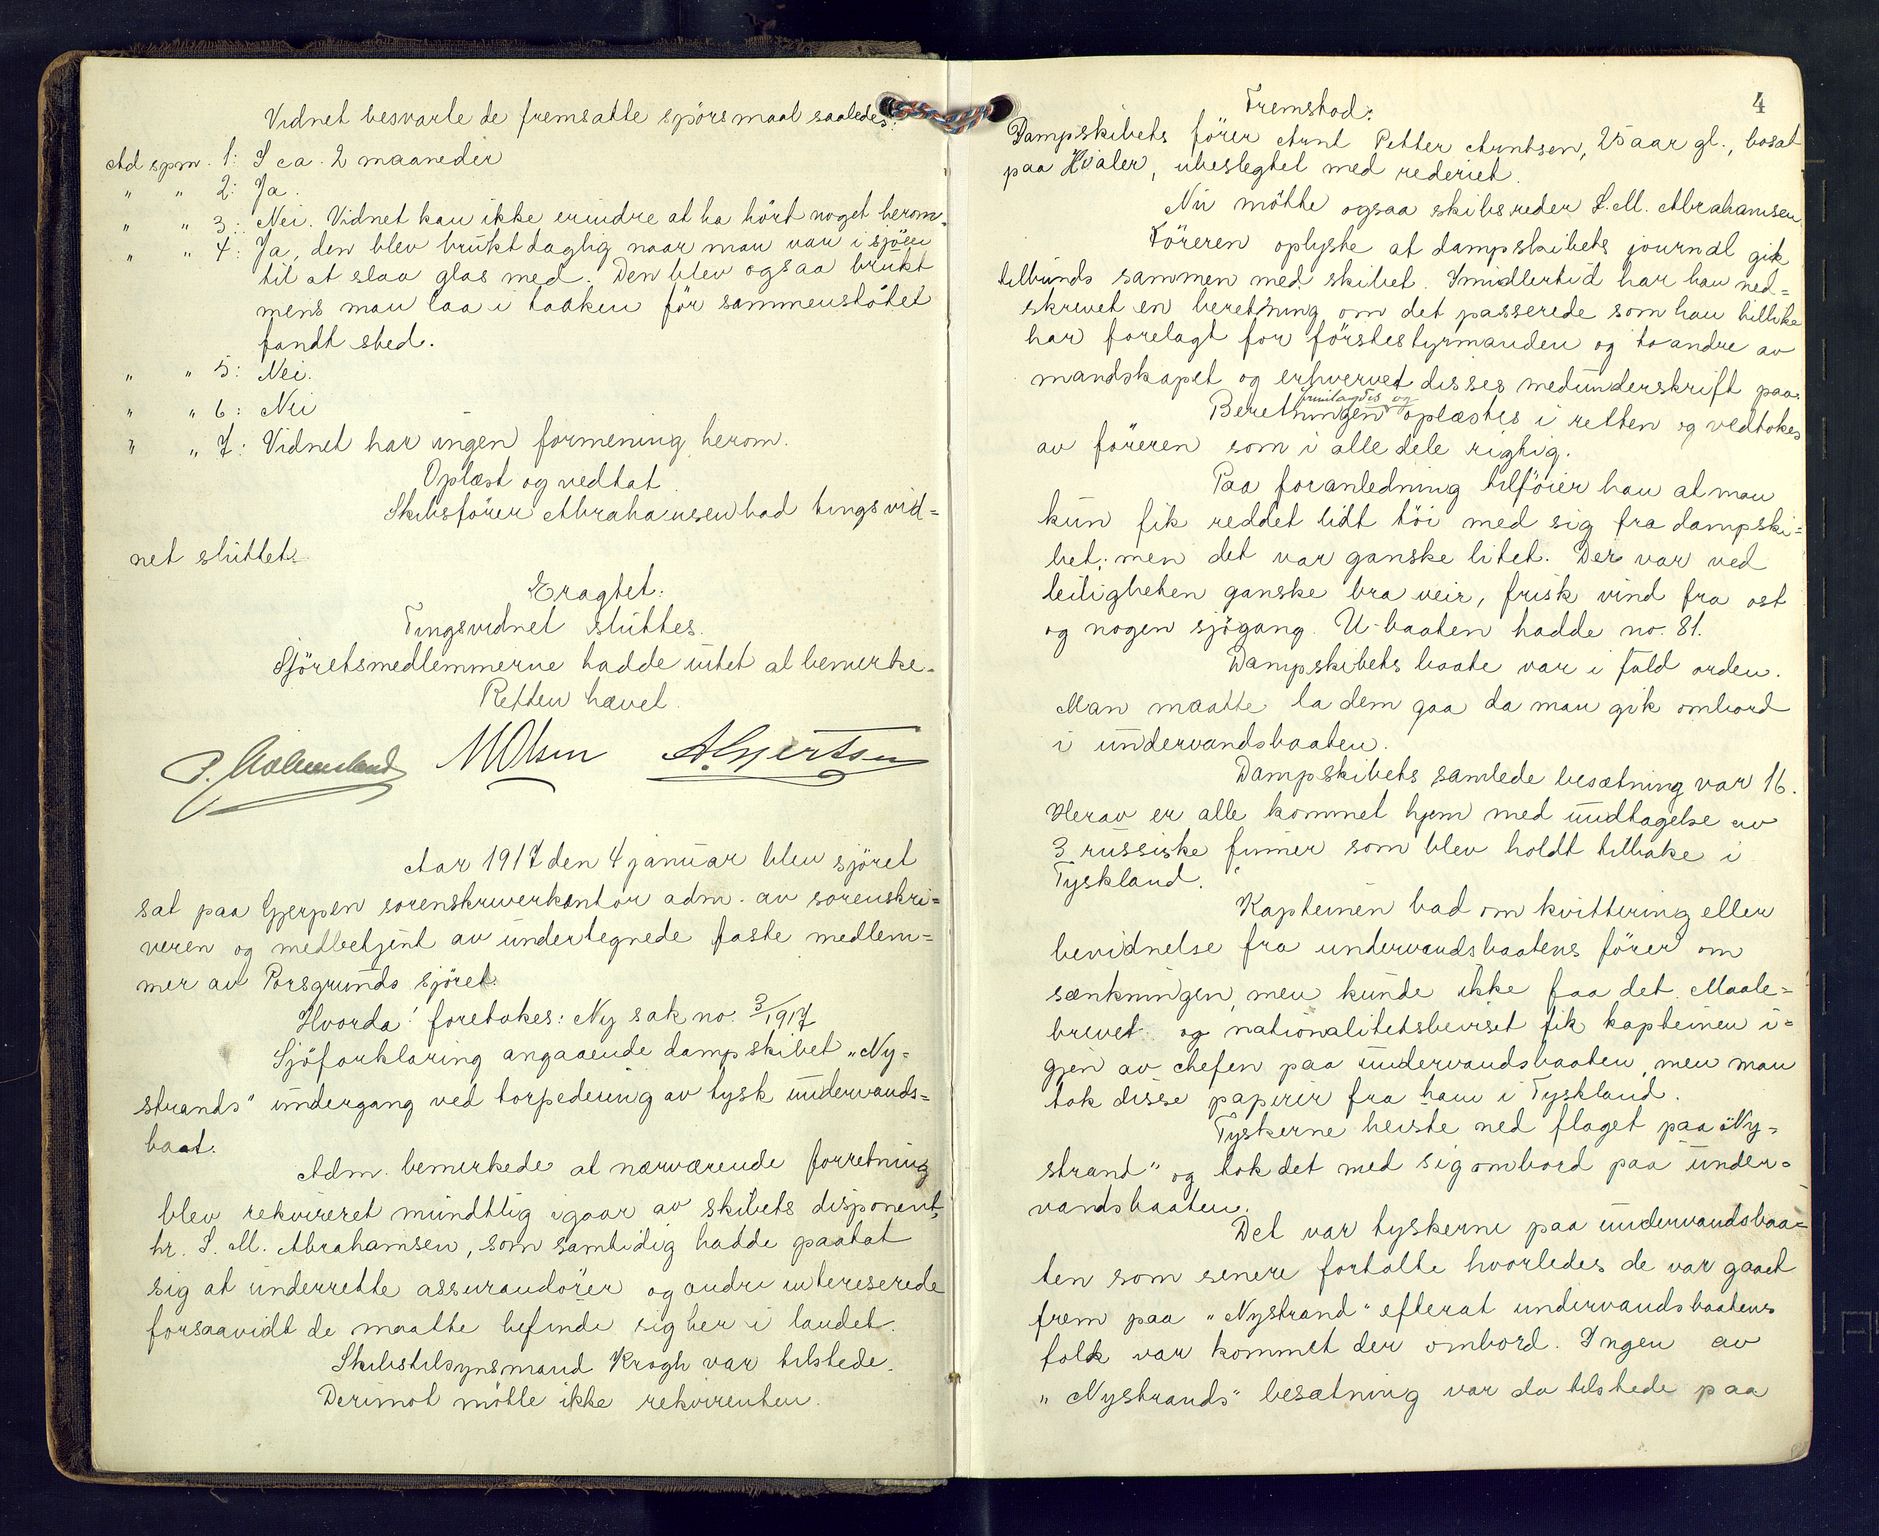 Vidnet besvarte de fremsatte spörsmaal saaledes:
Ad spm. 1: I ca. 2 maaneder
" " 2: Ja.
" " 3: Nei. Vidnet kan ikke erindre at ha hört noget herom.
" " 4: Ja, den blev brukt daglig naar man var i sjöen
til at slaa glas med. Den blev ogsaa brukt
mens man laa i taaken för sammenstötet
fandt sted.
" " 5: Nei.
" " 6: Nei
" " 7: Vidnet har ingen formening herom.
Oplæst og vedtat.
Skibsförer Abrahamsen bad tingsvid=
net sluttet.
Eragtet:
Tingsvidnet sluttes.
Sjöretsmedlemmerne hadde intet at bemerke.
Retten hævet.
MOlsen A. Gjertsen
Aar 1917 den 4 januar blev sjöret
sat paa Gjerpen sorenskriverkontor adm. av sorenskri=
veren og medbetjent av undertegnede faste medlem=
mer av Porsgrunds sjöret.
Hvorda! foretokes: Ny sak no. 3/1917
Sjöforklaring angaaende dampskibet „Ny=
strands" undergang ved torpedering av tysk undervands=
baat.
Adm. bemerkede at nærværende forretning
blev rekvireret mundtlig igaar av skibets disponent,
hr. S. M. Abrahamsen, som samtidig hadde paatat
sig at underrette assurandörer og andre interesserede
forsaavidt de maatte befinde sig her i landet.
Skibstilsynsmand Krogh var tilstede.
Derimot mötte ikke rekvirenten.
4
Fremstod:
Dampskibets förer Arnt Petter Arntsen, 25 aar gl., bosat
paa Hvaler, ubeslegtet med rederiet.
Nu mötte ogsaa skibsreder S. M. Abrahamsen
Föreren oplyste at dampskibets journal gik
tilbunds sammen med skibet. Imidlertid har han ned=
skrevet en beretning om det passerede som han tillike
har forelagt for förstestyrmanden og to andre av
mandskapet og erhvervet disses medunderskrift paa.
fremlagdes og
Beretningen oplæstes i retten og vedtokes
av föreren som i alle dele rigtig.
Paa foranledning tilföier han at man
kun fik reddet lidt töi med sig fra dampski=
bet; men det var ganske litet. Der var ved
leiligheten ganske bra veir, frisk vind fra ost
og nogen sjögang. U-baaten hadde no. 81.
Dampskibets baate var i fuld orden.
Man maatte la dem gaa da man gik ombord
i undervandsbaaten.
Dampskibets samlede besætning var 16.
Herav er alle kommet hjem med undtagelse av
3 russiske finner som blev holdt tilbake i
Tyskland.
Kapteinen bad om kvittering eller
bevidnelse fra undervandsbaatens förer om
sænkningen, men kunde ikke faa det. Maale=
brevet og nationalitetsbeviset fik kapteinen i=
gjen av chefen paa undervandsbaaten, men man
tok disse papirer fra ham i Tyskland.
Tyskerne heiste ned flaget paa „Ny=
strand" og tok det med sig ombord paa under=
vandsbaaten.
Det var tyskerne paa undervandsbaa=
ten som senere fortalte hvorledes de var gaaet
frem paa „Nystrand" efterat undervandsbaatens
folk var kommet der ombord. Ingen av
„Nystrands" besætning var da tilstede paa